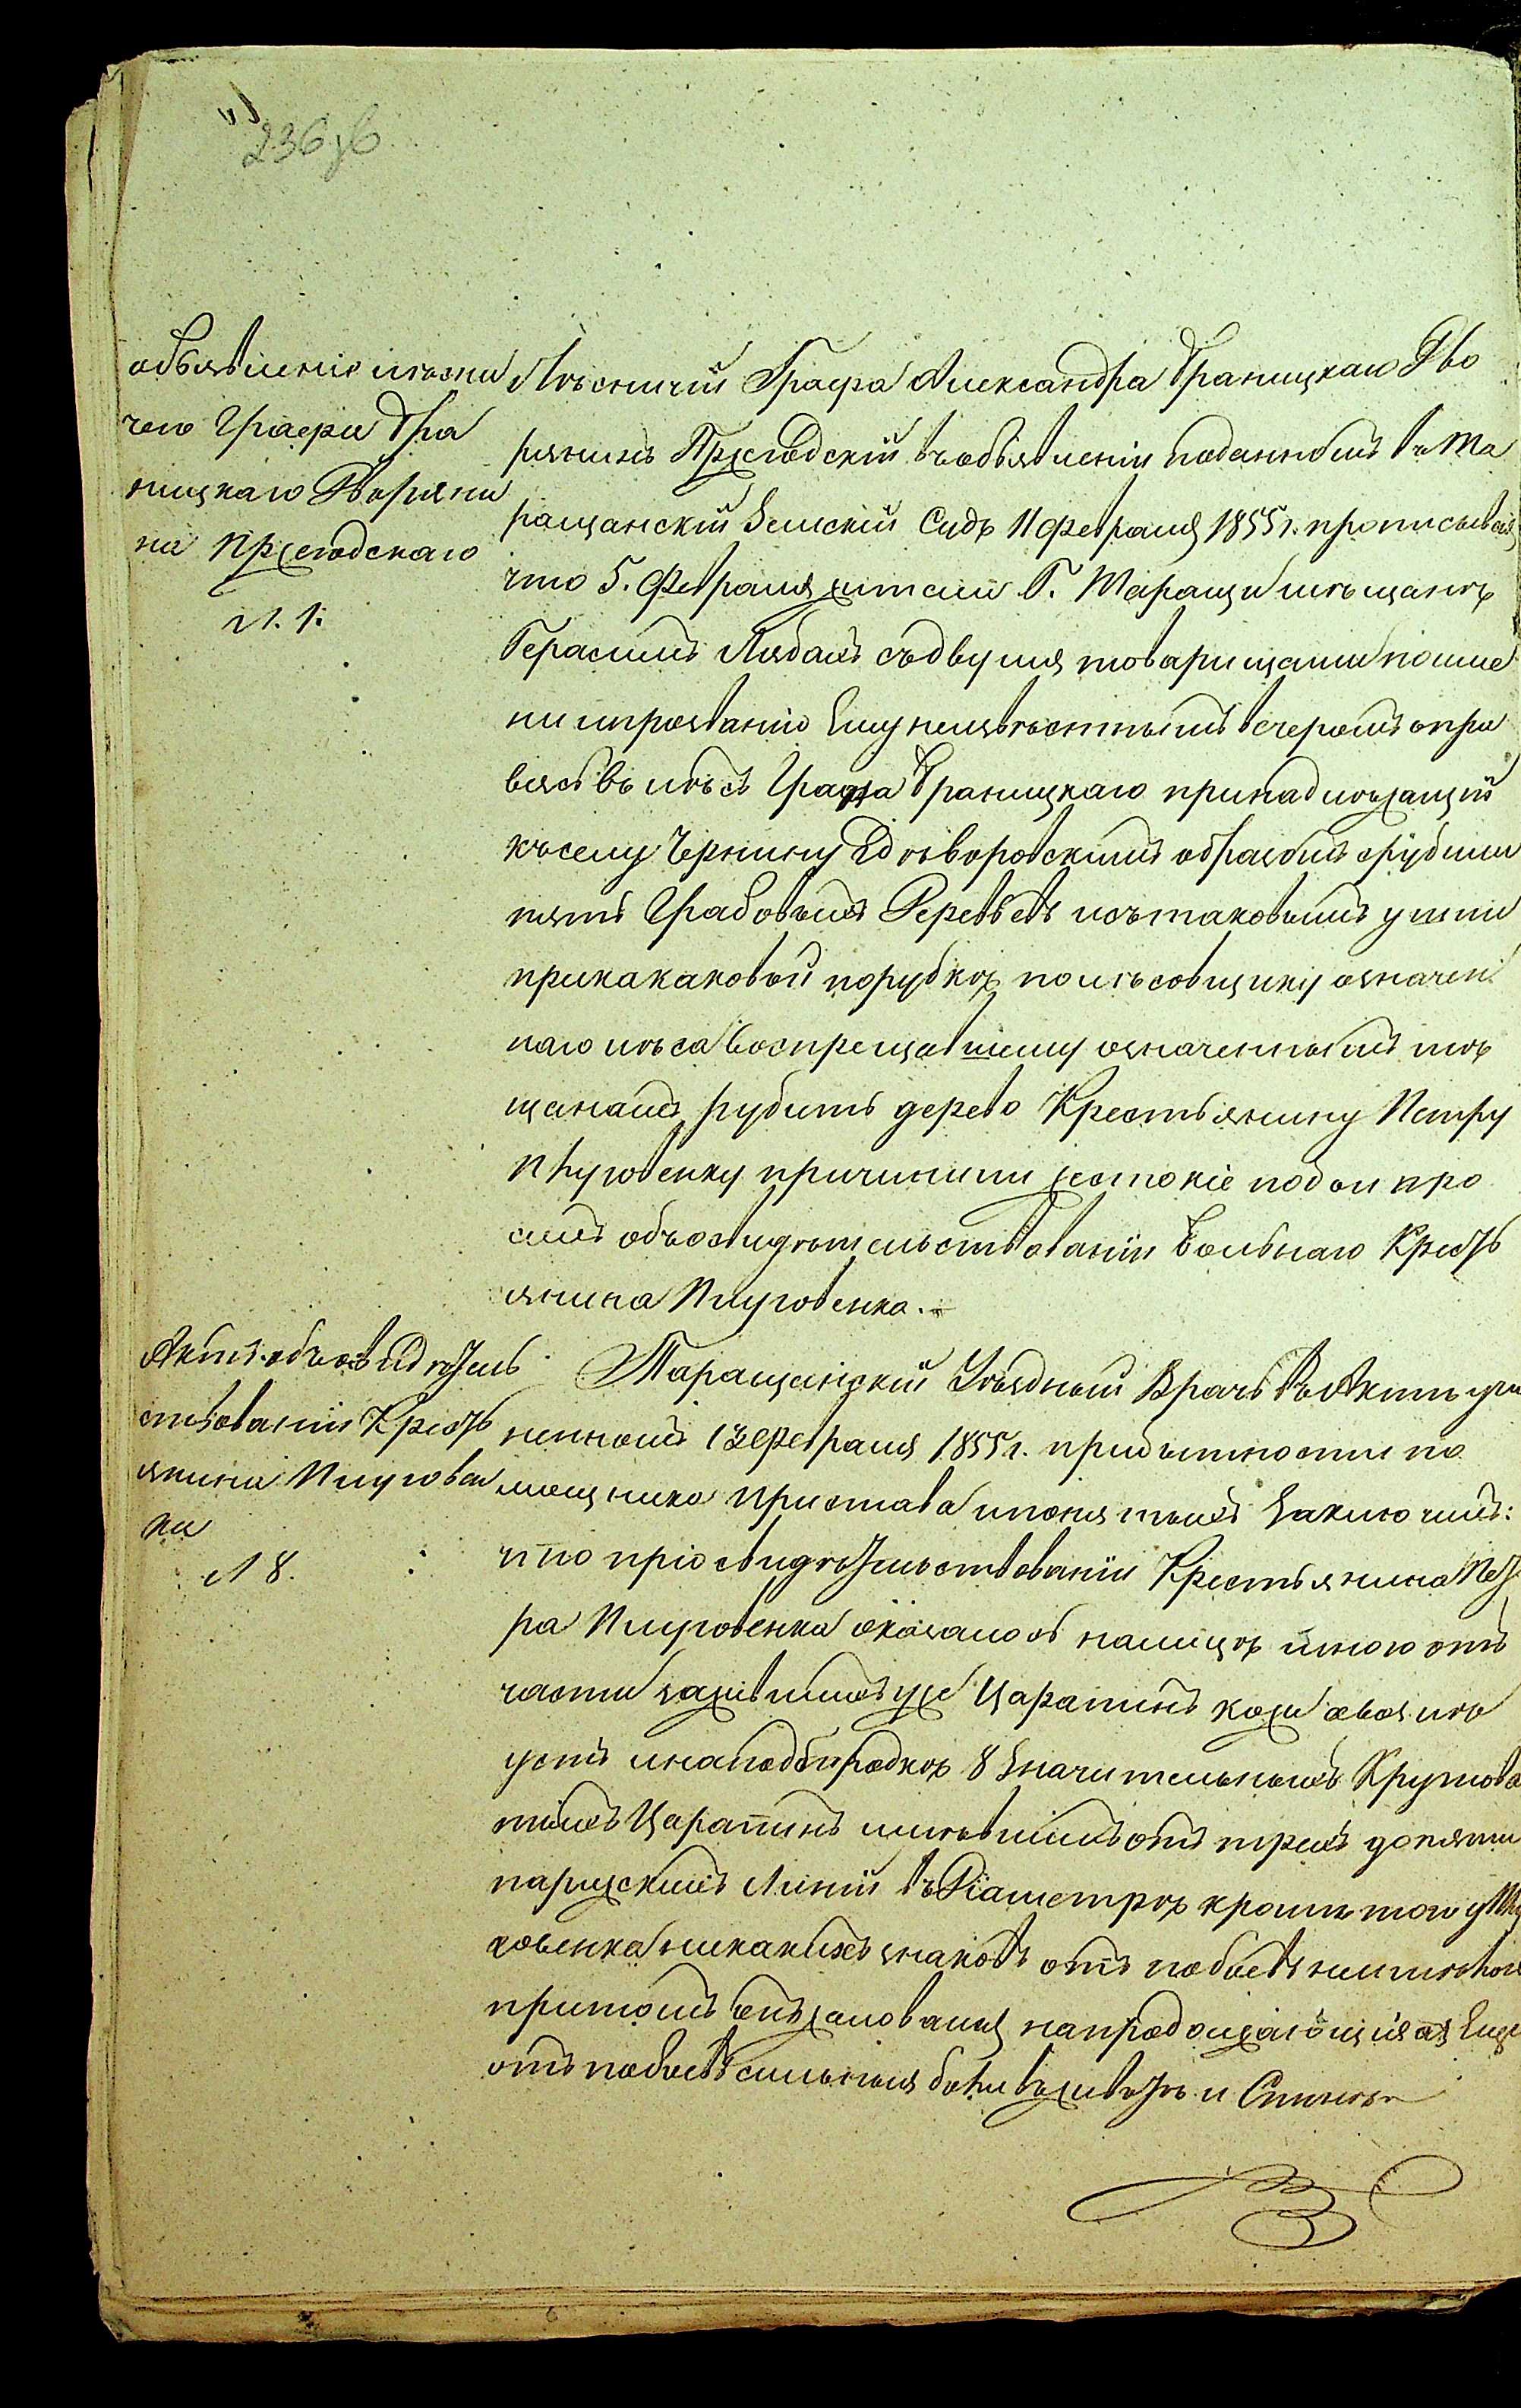 236 об
объявленіе лѣсни
чего Графа Бра
ницкаго Дворяни
на Пржегодскаго
л. 1.
Лѣсничій Графа Александра Браницкаго Дво
рянинъ Пржегодскій въ объявленіи поданномъ въ Та
ращанскій Земскій Судъ 11 февраля 1855 г. прописывая
что 5. февраля жители Г. Таращи мѣщане
Герасимъ съ двумя товарищами по име
ни и прозванію Ему неизвѣстнымъ вечеромъ
въ лѣсъ Графа Браницкаго принадлежащій
къ селу Чернину воровскимъ образомъ срубили
пять Грабовыхъ Деревьевъ и съ таковыми ушли
при каковой порубкѣ полѣсовщику означен
наго лѣса воспрещавшему означеннымъ мѣ
щанамъ рубить дерево Крестьянину Петру
Пуговенку причинили жестокіе побои про
силъ объ освидѣтельствованіи больнаго Кресть
янина Пуговенка.
Актъ объ освидѣтель
ствованіи Кресть
янина Пуговен
ка
л 8.
Таращанскій Уѣздный Врачъ въ Актѣ учи
ненномъ 13 февраля 1855 г. при бытности по
мощника Пристава и понятыхъ заключилъ:
что при освидѣтельствованіи Крестьянина Пет
ра Пуговенка оказалось на лицѣ много отъ
части зажившихъ уже Царапинъ кожи около
устъ и на подбородкѣ 8 значительныхъ Кругова
тыхъ Царапинъ имѣвшихъ отъ трехъ до пяти
парижскихъ Линій въ Діаметрѣ кромѣ того у Пу
говенка никакихъ знаковъ отъ побоевъ не имѣлось
притомъ онъ жаловался на продолжающіяся Еще
отъ побоевъ сильныя боли въ животѣ и Спинѣ